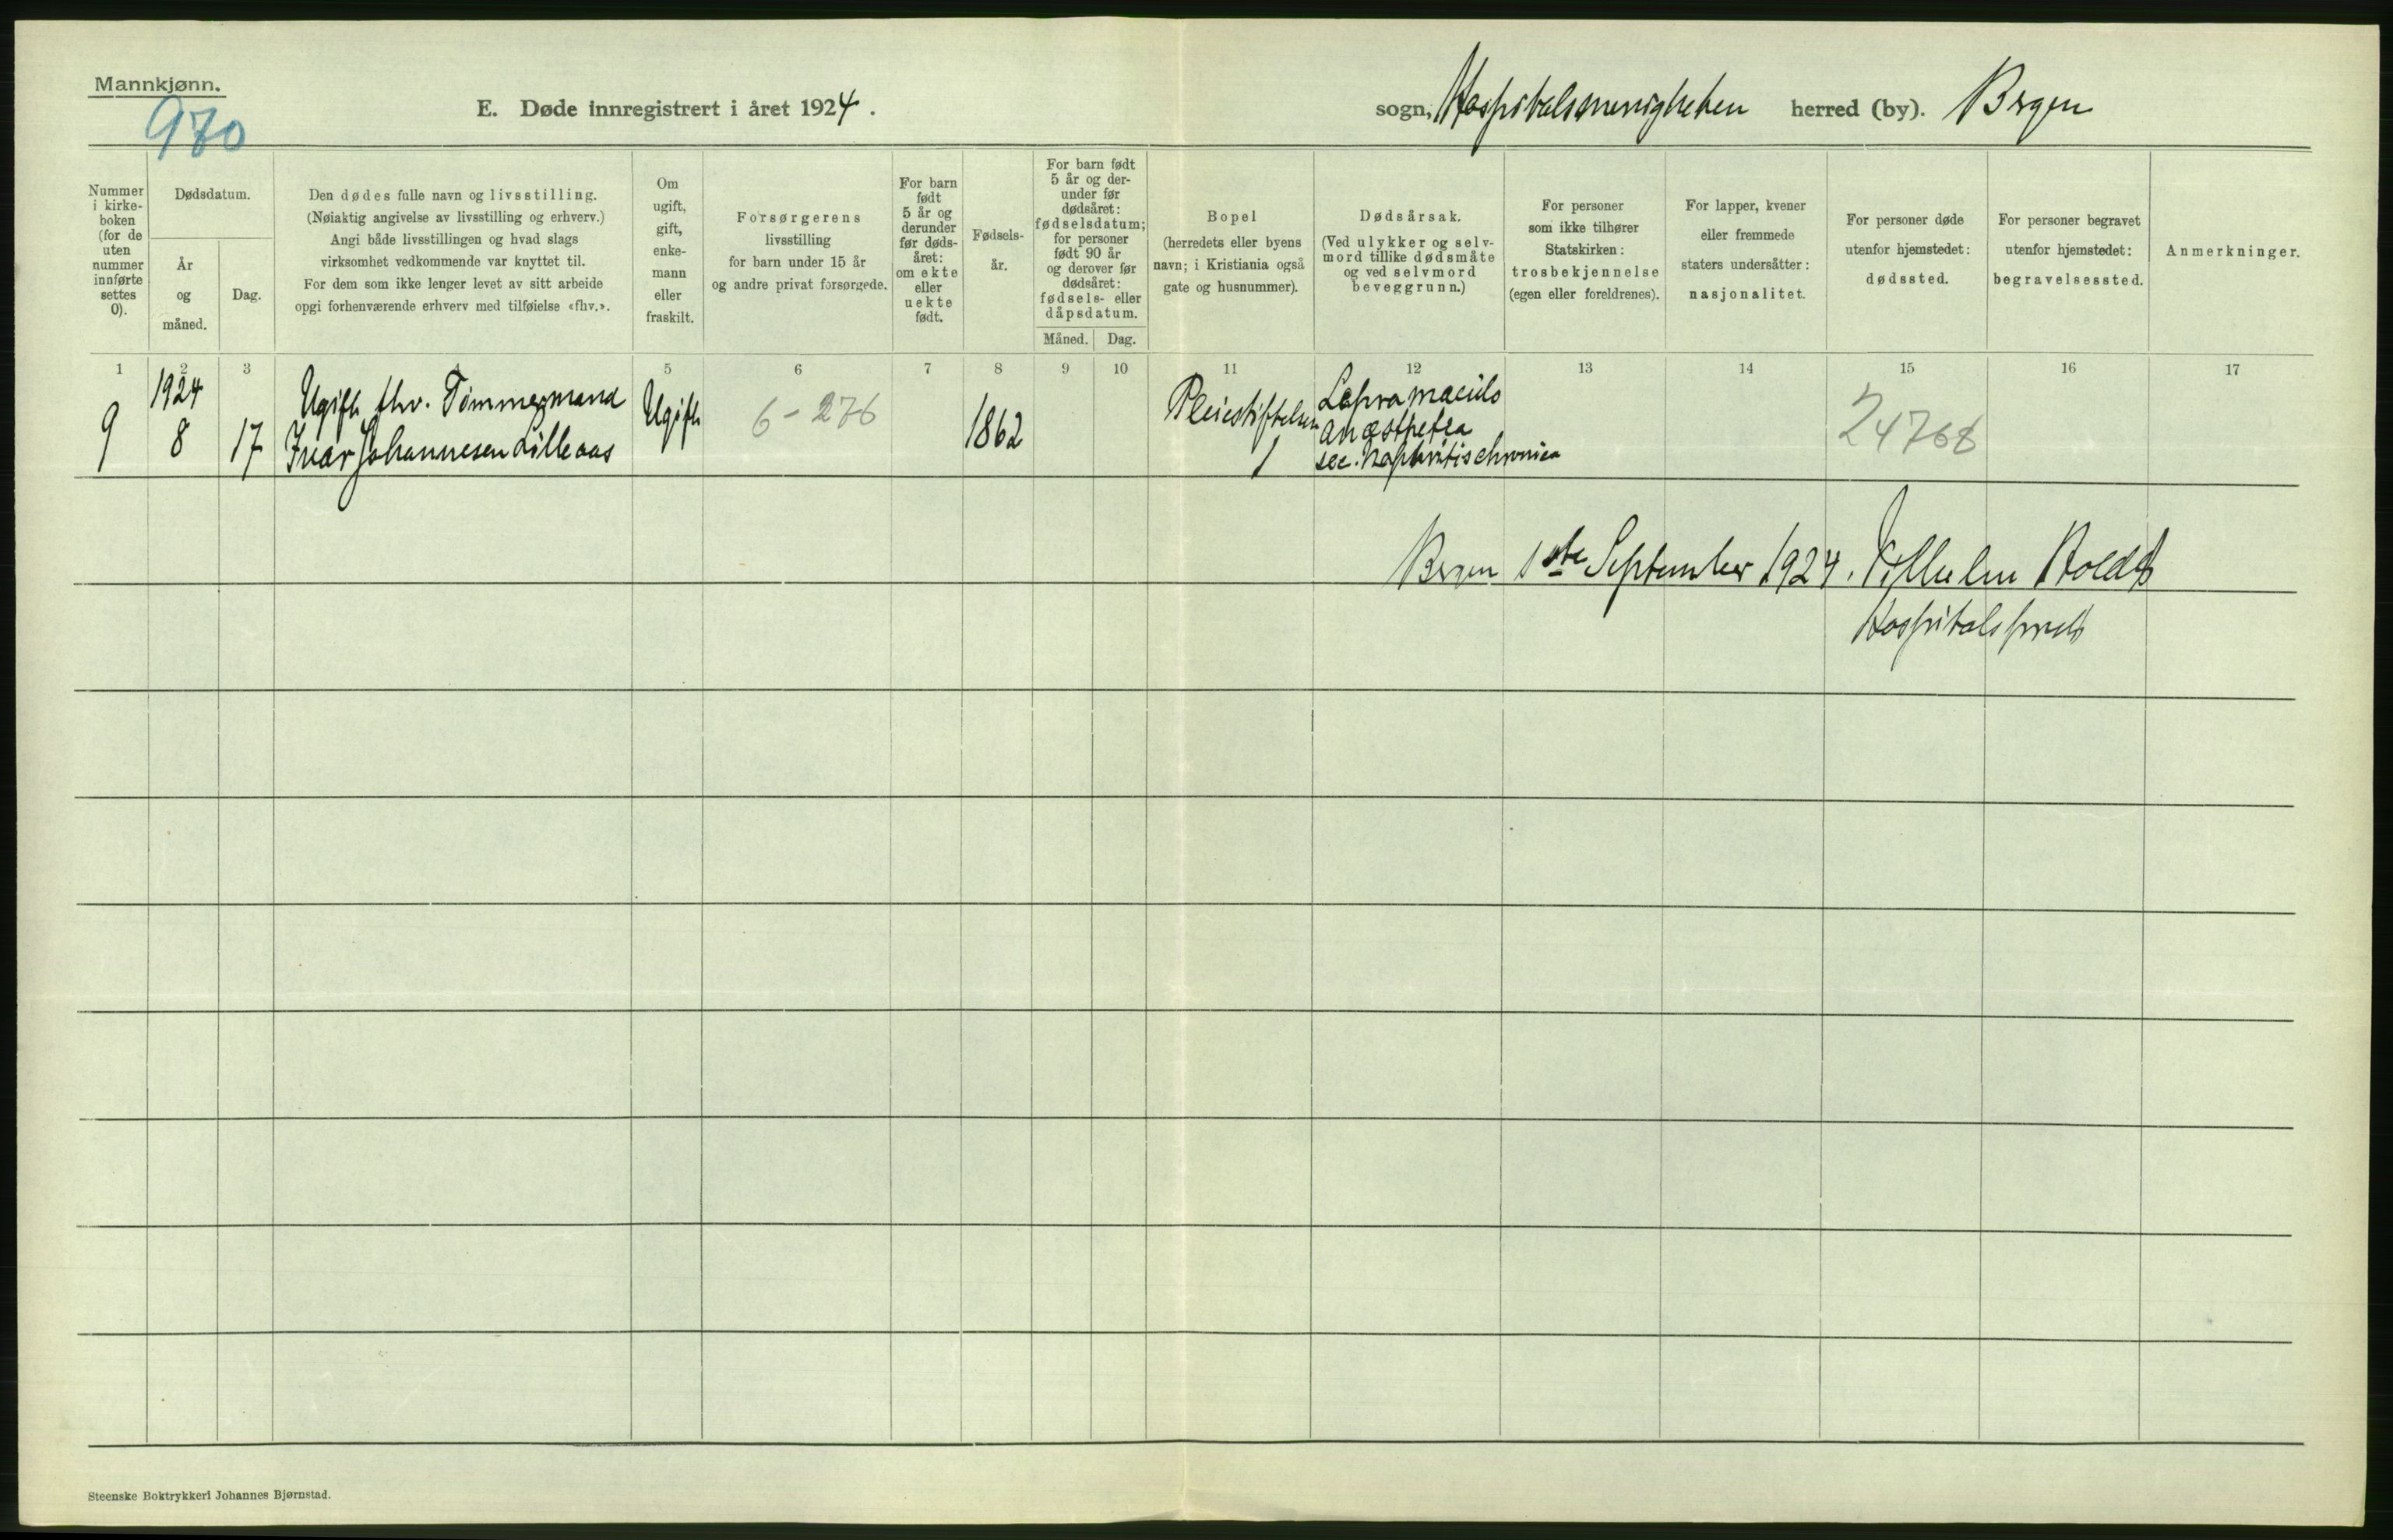 Mannkjønn.
970
E. Døde innregistrert i året 1924.
sogn, Hospitalsmenigheten herred (by). Bergen
Nummer
i kirke-
boken
(for de
uten
nummer
innførte
settes
0).
Dødsdatum.
År
og
måned.
Dag.
Den dødes fulle navn og livsstilling.
(Nøiaktig angivelse av livsstilling og erhverv.)
Angi både livsstillingen og hvad slags
virksomhet vedkommende var knyttet til.
For dem som ikke lenger levet av sitt arbeide
opgi forhenværende erhverv med tilføielse «fhv.».
Om
ugift,
gift,
enke-
mann
eller
fraskilt.
Forsørgerens
livsstilling
for barn under 15 år
og andre privat forsørgede.
For barn
født
5 år og
derunder
før døds-
året:
om ekte
eller
uekte
født.
Fødsels-
år.
For barn født
5 år og der-
under før
dødsåret:
fødselsdatum;
for personer
født 90 år
og derover før
dødsåret:
fødsels- eller
dåpsdatum.
Måned. Dag.
Bopel
(herredets eller byens
navn; i Kristiania også
gate og husnummer).
Dødsårsak.
(Ved ulykker og selv-
mord tillike dødsmåte
og ved selvmord
beveggrunn.)
For personer
som ikke tilhører
Statskirken:
trosbekjennelse
(egen eller foreldrenes).
For lapper, kvener
eller fremmede
staters undersåtter:
nasjonalitet.
For personer døde
utenfor hjemstedet:
dødssted.
For personer begravet
utenfor hjemstedet:
begravelsessted.
Anmerkninger.
1 2 3 5 6 7 8 9 10 11 12 13 14 15 16 17
9
1924
8
17
Ugift fhv. Tømmermand
Ivar Johannesen Lilleaas
Ugift
6-276
1862
Pleiestiftelsen
1
Lepra maculo
anæsthetea
sec. Nephritis chronica
24768
Bergen 1ste September 1924. Vilhelm Holdt
Hospitalsprest
Steenske Boktrykkeri Johannes Bjørnstad.